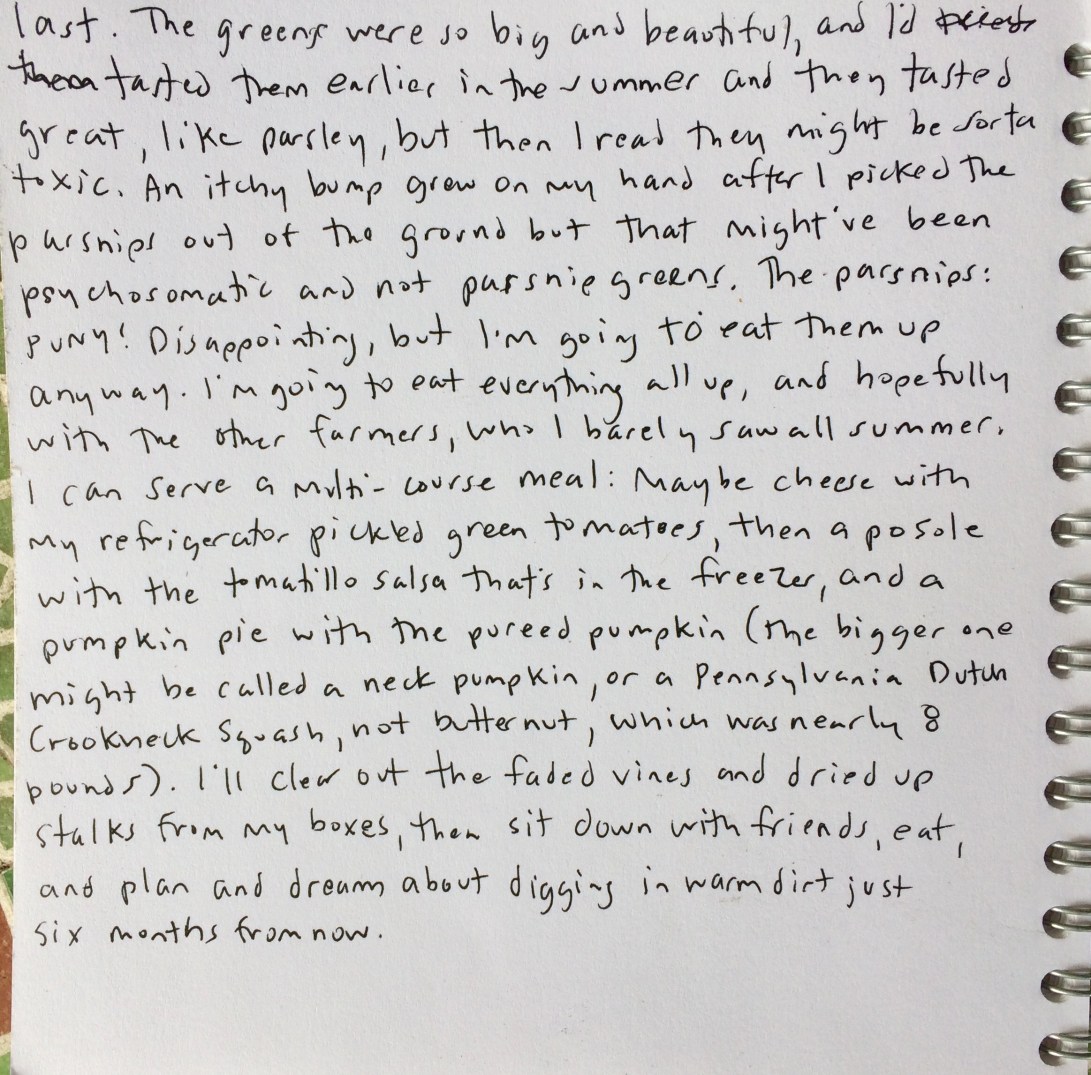 last. The greens were so big and beautiful, and I'd
tasted them earlier in the summer and they tasted
great, like parsley, but then I read they might be sorta
toxic. An itchy bump grew on my hand after I picked the
parsnips out of the ground but that might've been
psychosomatic and not parsnip greens. The parsnips:
puny! Disappointing, but I'm going to eat them up
anyway. I'm going to eat everything all up, and hopefully
with the other farmers, who I barely saw all summer.
I can serve a multi-course meal: Maybe cheese with
my refrigerator pickled green tomatoes, then a posole
with the tomatillo salsa that's in the freezer, and a
pumpkin pie with the pureed pumpkin (the bigger one
might be called a neck pumpkin, or a Pennsylvania Dutch
Crookneck Squash, not butternut, which was nearly 8
pounds). I'll clear out the faded vines and dried up
stalks from my boxes, then sit down with friends, eat,
and plan and dream about digging in warm dirt just
six months from now.